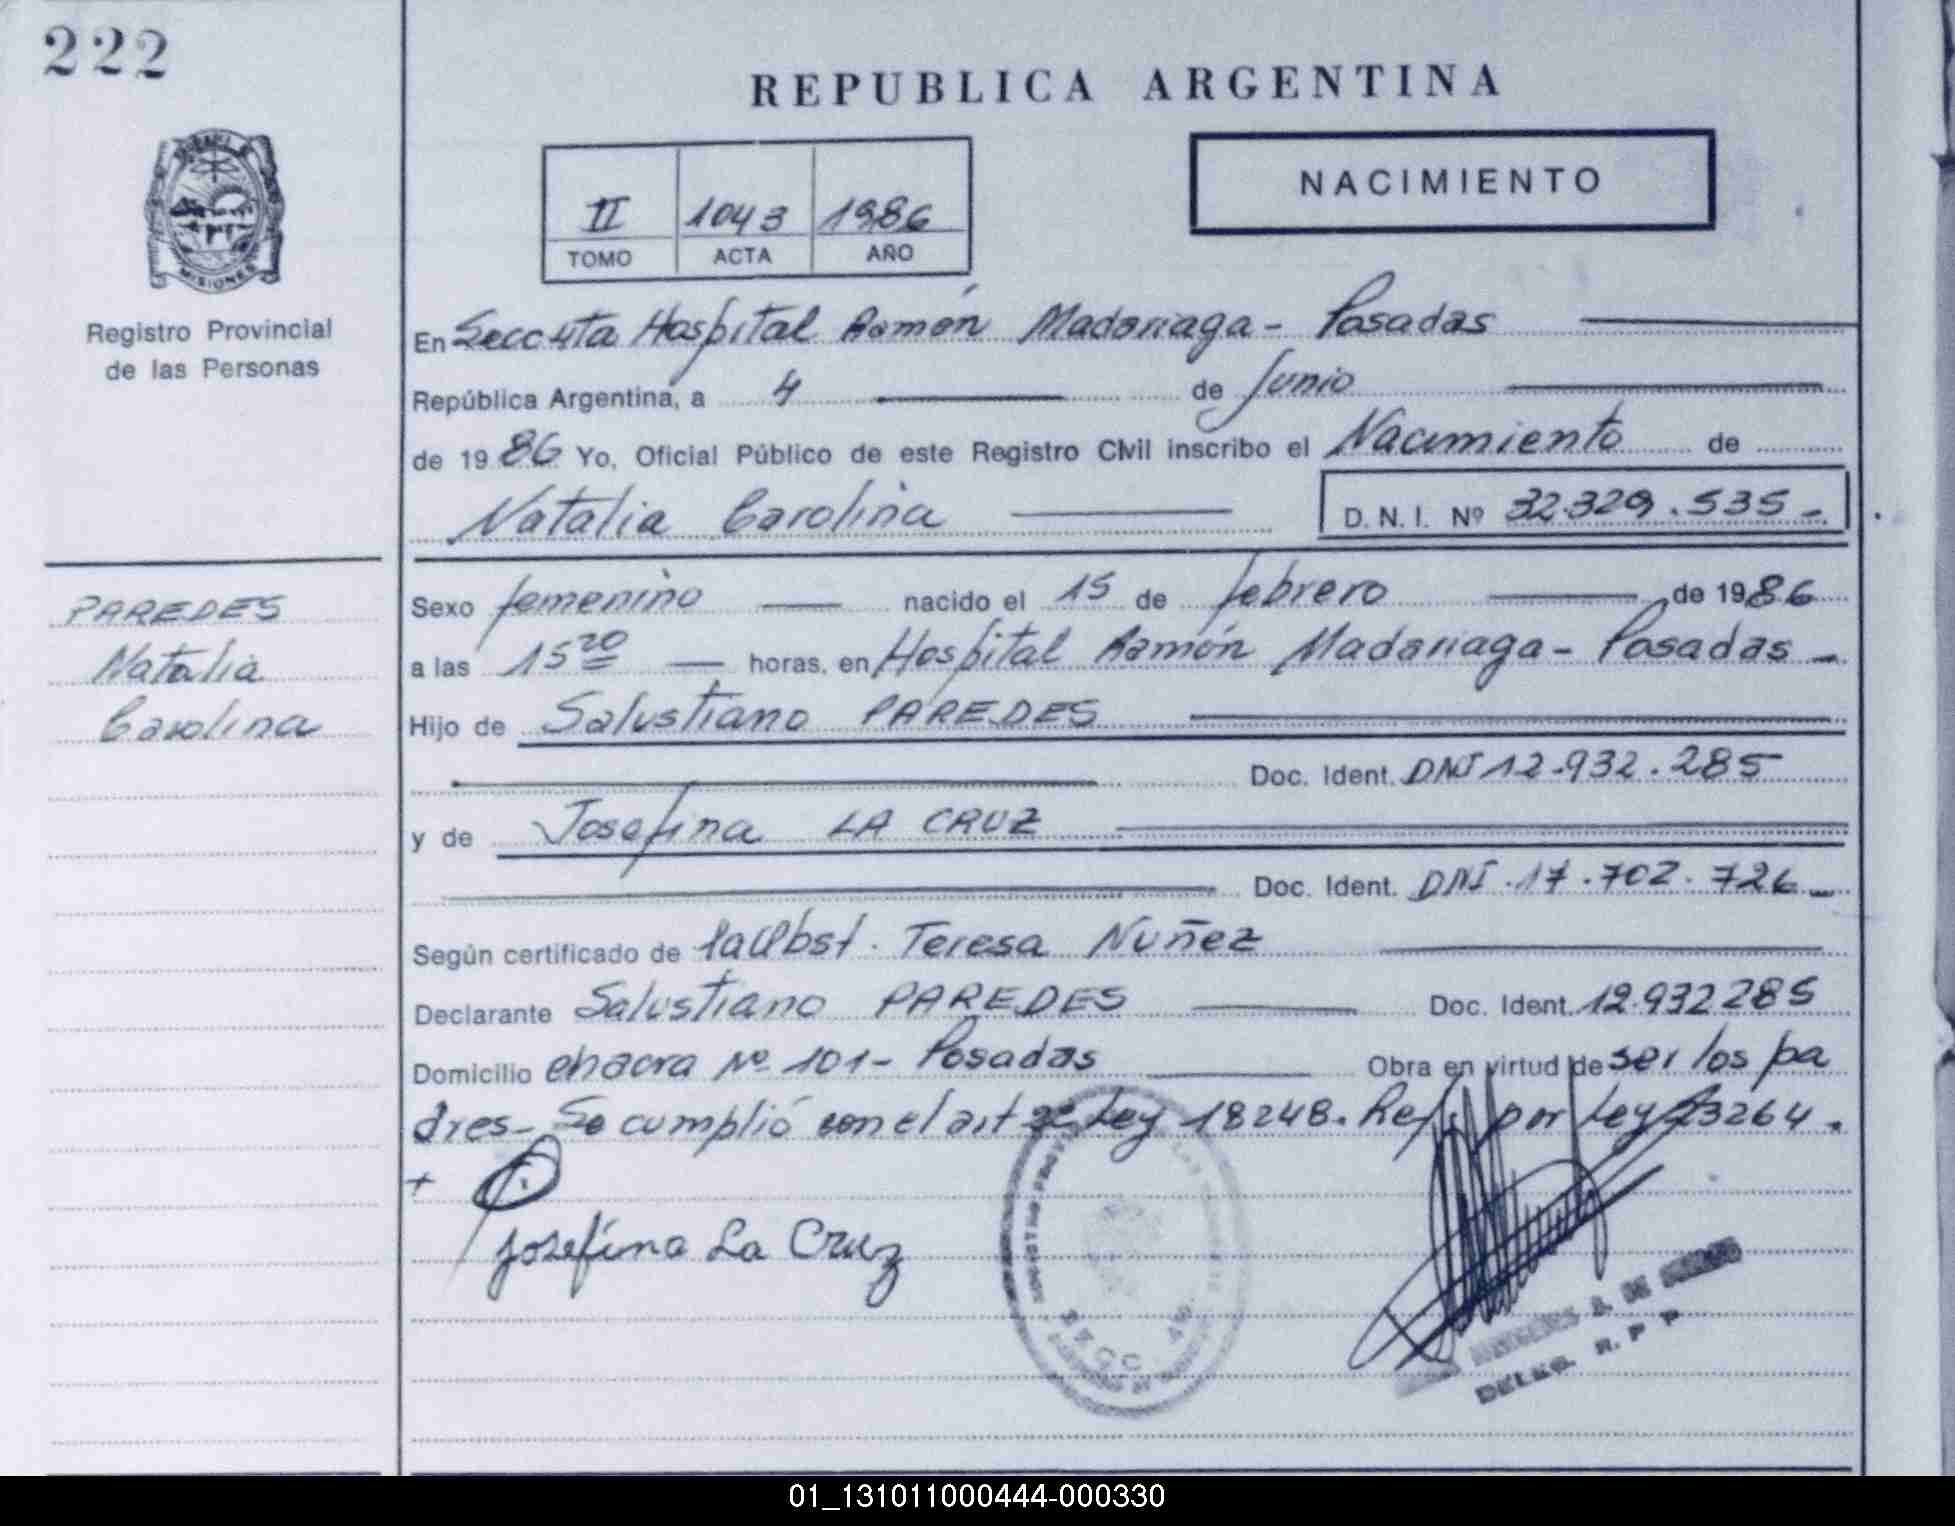 222
REPUBLICA ARGENTINA
MISIONES
Registro Provincial
de las Personas
II 1043 1986
TOMO ACTA AÑO
NACIMIENTO
En Secc 4ta Hospital Ramón Madariaga - Posadas
República Argentina, a 4 de Junio
de 1986 Yo, Oficial Público de este Registro Civil inscribo el Nacimiento de
Natalia Carolina D. N. I. Nº 32.329.535.-
PAREDES
Natalia
Carolina
Sexo femenino nacido el 15 de febrero de 1986
a las 15 20 horas, en Hospital Ramón Madariaga - Posadas -
Hijo de Salustiano PAREDES
Doc. Ident. DNI 12.932.285
y de Josefina LA CRUZ
Doc. Ident. DNI .17.702.726 -
Según certificado de la Obst. Teresa Nuñez
Declarante Salustiano PAREDES Doc. Ident. 12.932285
Domicilio chacra Nº 101 - Posadas Obra en virtud de ser los pa
dres - Se cumplió con el art Ley 18248. Ref. por Ley 23264.
Josefina La Cruz
DELEG. R. P. P
01_131011000444-000330